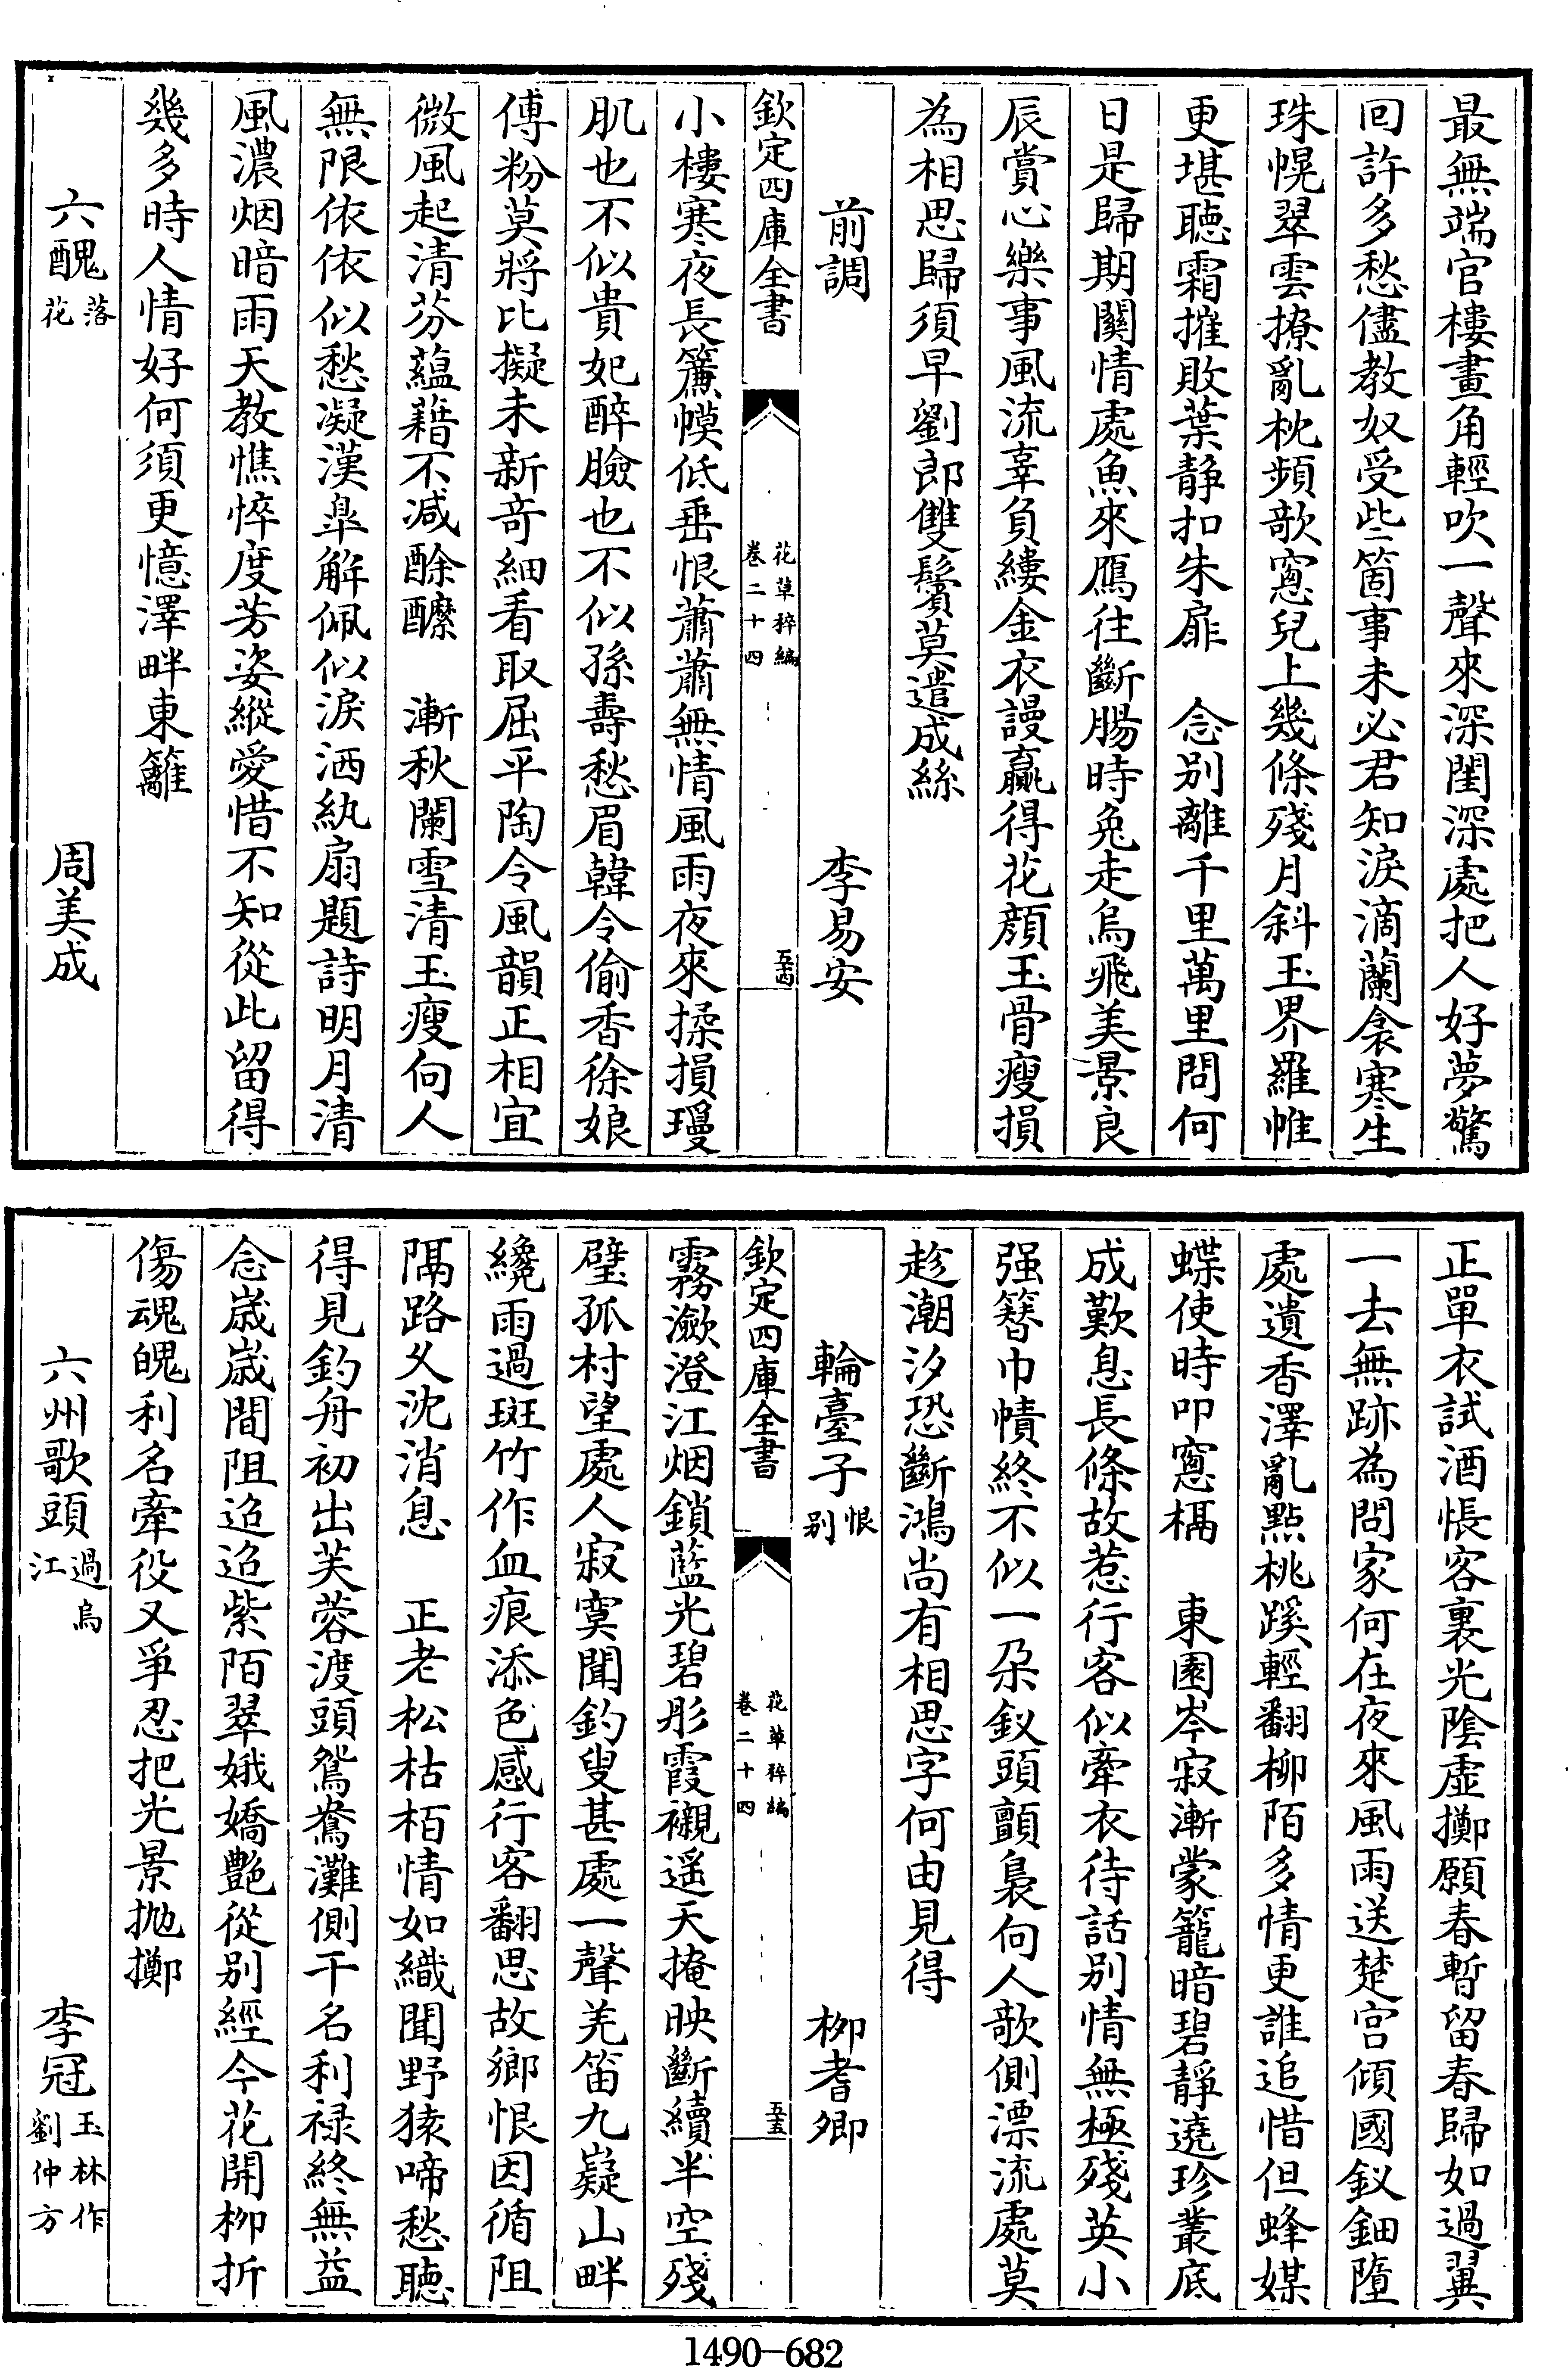 最無端官樓畫角輕吹一聲來深閨深處把人好夢驚
回許多愁儘教奴受些箇事未必君知淚滴蘭衾寒生
珠幌翠雲撩亂枕頻欹窓兒上幾條殘月斜玉界羅帷
更堪聽霜摧敗葉静扣朱扉　念别離千里萬里問何
日是歸期關情處魚來鴈往斷腸時兔走烏飛美景良
辰賞心樂事風流辜負縷金衣謾贏得花顔玉骨瘦損
為相思歸須早劉郎雙鬢莫遣成絲
前調　李易安
欽定四庫全書　花草稡編卷二十四　五十四
小樓寒夜長簾幙低垂恨蕭蕭無情風雨夜來揉損瓊
肌也不似貴妃醉臉也不似孫壽愁眉韓令偷香徐娘
傅粉莫將比擬未新竒細看取屈平陶令風韻正相宜
微風起清芬蘊藉不减酴醾　漸秋闌雪清玉瘦向人
無限依依似愁凝漢臯解佩似淚洒紈扇題詩明月清
風濃烟暗雨天教憔悴度芳姿縱愛惜不知從此留得
幾多時人情好何須更憶澤畔東籬
六醜落花　周美成
正單衣試酒悵客裏光隂虚擲願春暫留春歸如過翼
一去無跡為問家何在夜來風雨送楚宫傾國釵鈿墮
處遺香澤亂㸃桃蹊輕翻柳陌多情更誰追惜但蜂媒
蝶使時叩窓槅　東園岑寂漸蒙籠暗碧靜遶珍叢底
成歎息長條故惹行客似牽衣待話别情無極殘英小
强簪巾幘終不似一朶釵頭顫裊向人欹側漂流處莫
趁潮汐恐斷鴻尚有相思字何由見得
輪臺子恨别　柳耆卿
欽定四庫全書　花草稡編卷二十四　五十五
霧歛澄江烟鎖藍光碧彤霞襯遥天掩映斷續半空殘
壁孤村望處人寂寞聞釣叟甚處一聲羌笛九嶷山畔
纔雨過斑竹作血痕添色感行客翻思故鄉恨因循阻
隔路久沈消息　正老松枯栢情如織聞野猿啼愁聽
得見釣舟初出芙蓉渡頭鴛鴦灘側干名利禄終無益
念嵗嵗間阻迢迢紫陌翠娥嬌艶從别經今花開柳折
傷魂魄利名牽役又爭忍把光景抛擲
六州歌頭過烏江　李冠玉林作劉仲方
1490-682